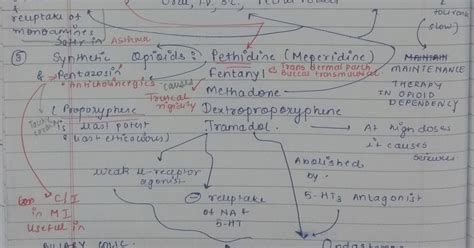 Oral, I.V, S.C,
& reuptake of
monoamines
Safer in Asthma
(slow)
⑧ Synthetic Opioids: Pethidine (Meperidine)
& Pentazosin Fentanyl
Trans dermal patch
buccal transmucosal
Anticholinergics causes
Truncal rigidity
Methadone
MAINTENANCE
THERAPY
IN OPIOID
DEPENDENCY
(Propoxyphene Dextropropoxyphene
is least potent
& least efficacious)
Tramadol
At high doses
it causes
seizures
weak μ-receptor
agonist
⊖ reuptake
of NA &
5-HT
Abolished
by
5-HT3 Antagonist
C/I
in MI
Useful in
BILIARY COLIC